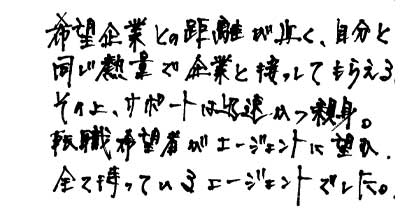 希望企業との距離が近く、自分と
同じ熱量で企業と接してもらえる
その上、サポートは迅速かつ親身。
転職希望者がエージェントに望む
全て持っているエージェントでした。